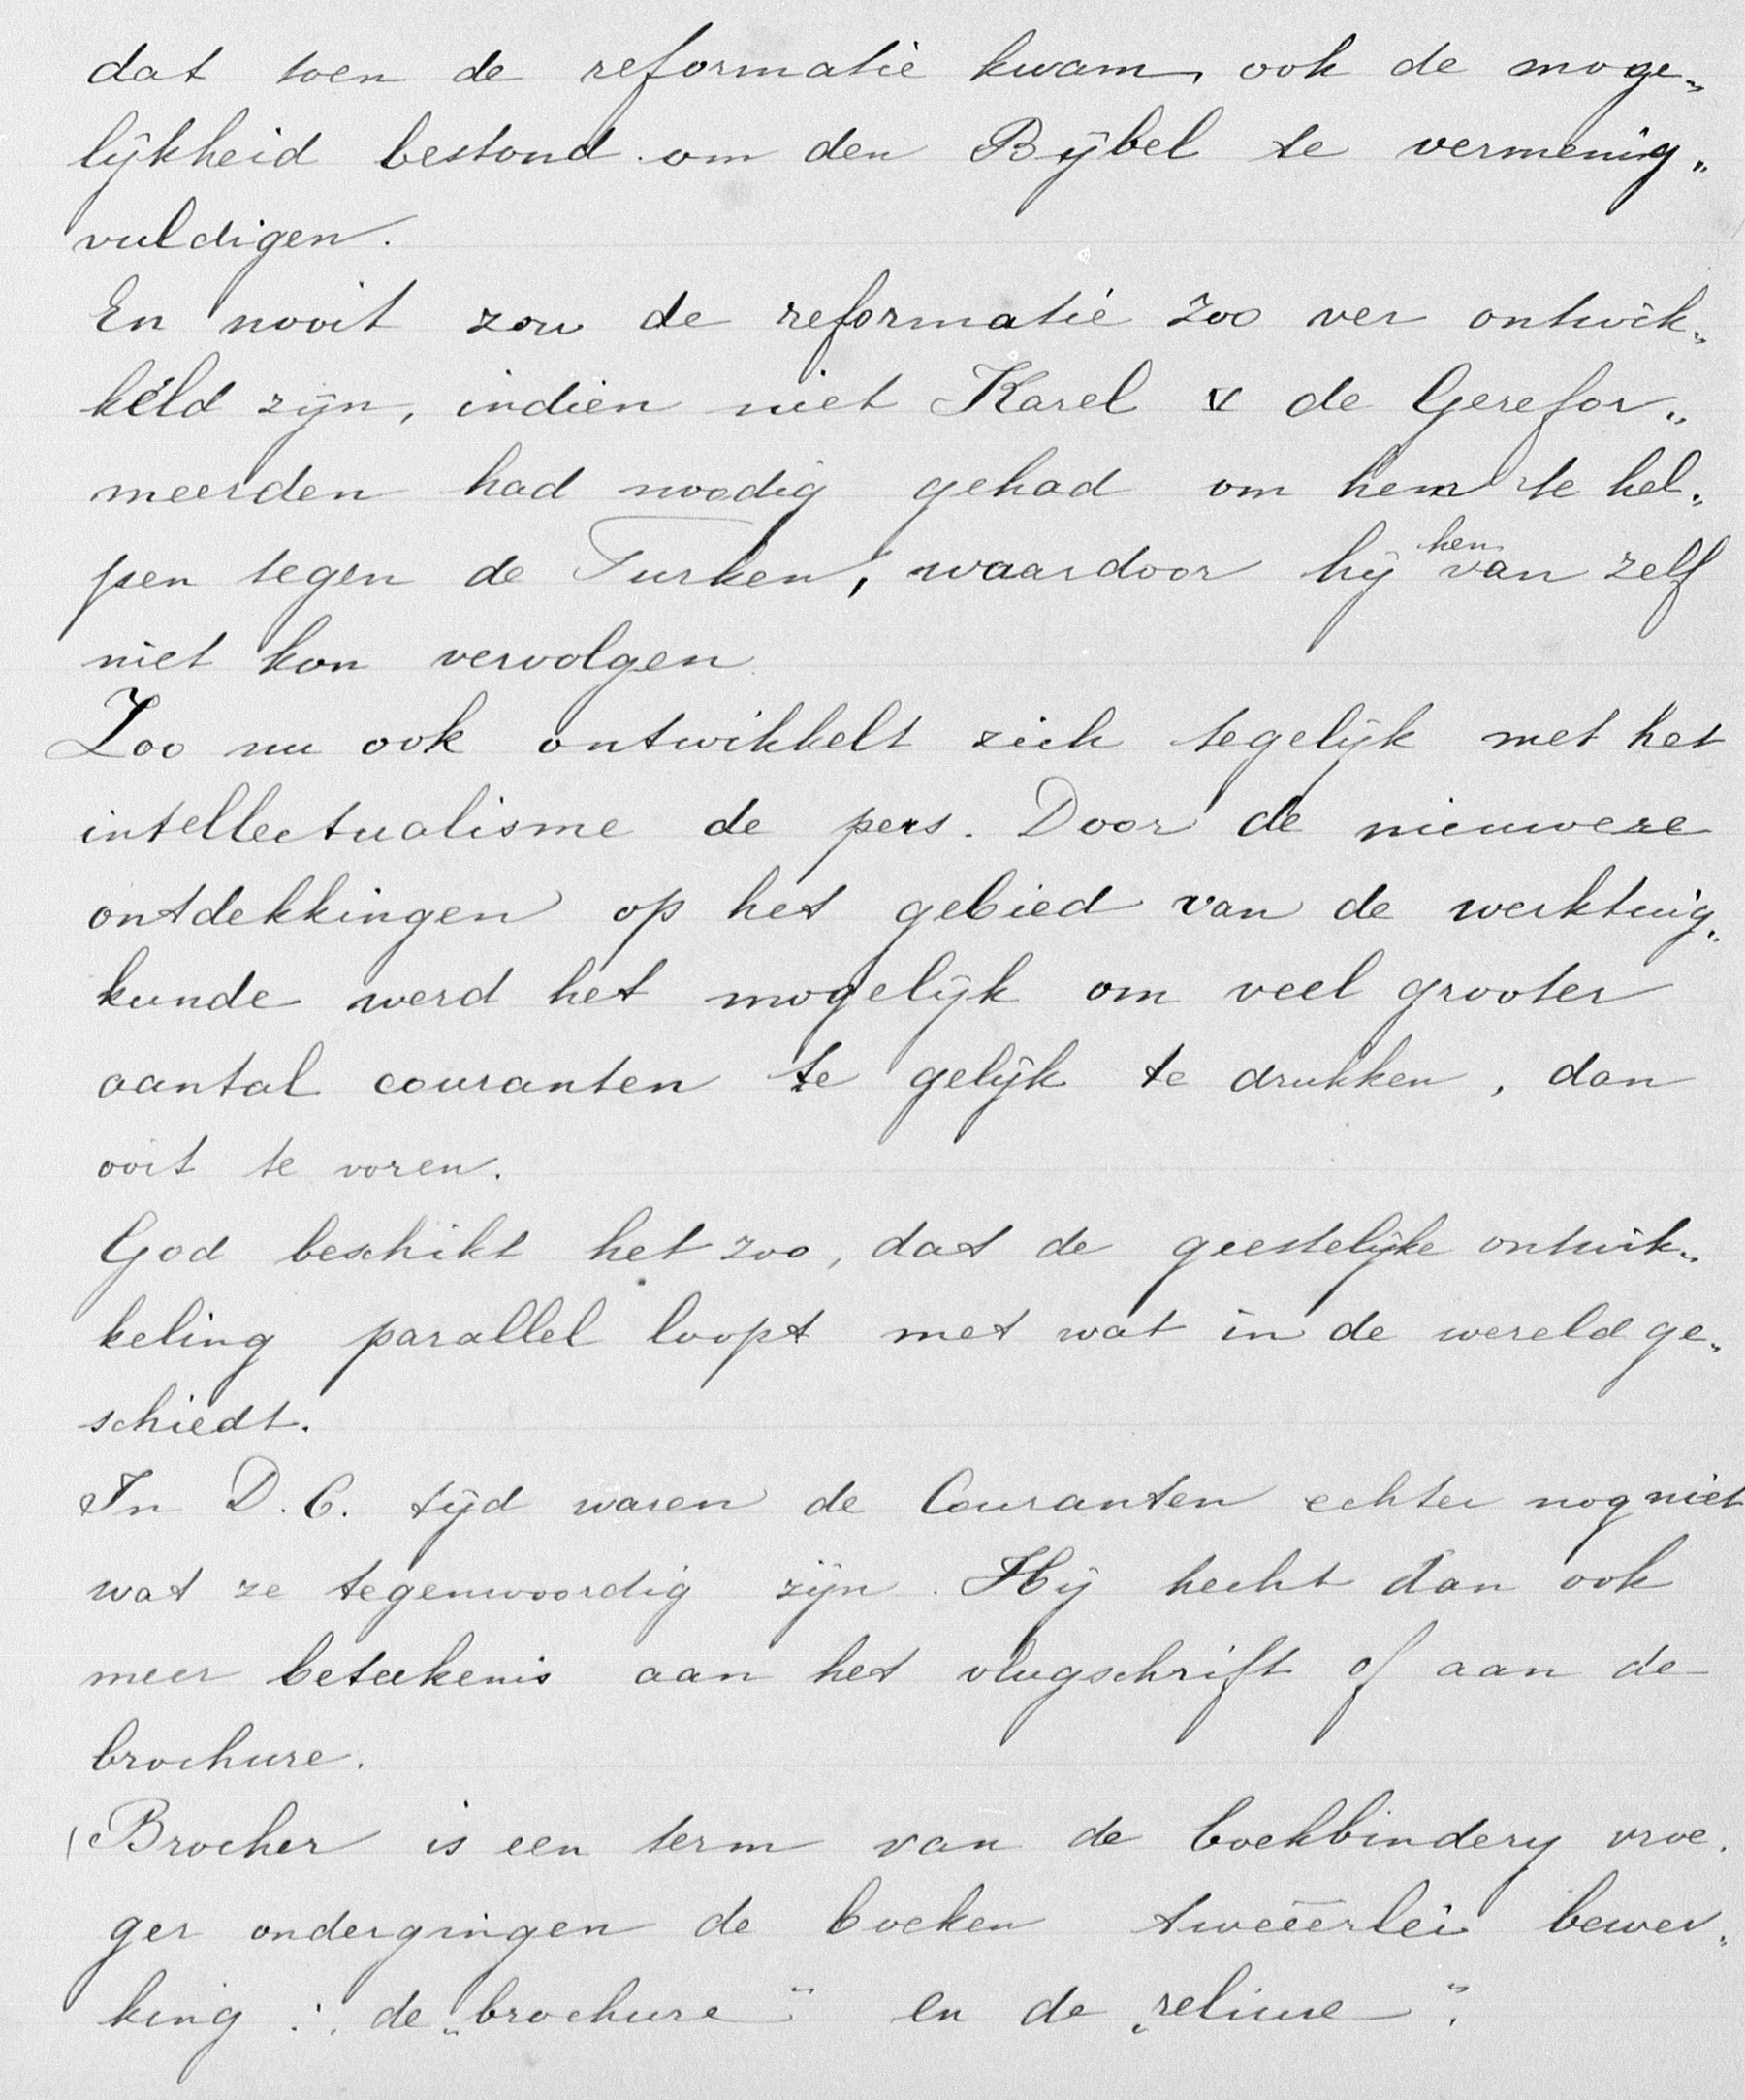 dat toen de reformatie kwam, ook de moge„
lijkheid bestond om den Bijbel te vermenig„
vuldigen.
En nooit zou de reformatie zoo ver ontwik„
keld zijn, indien niet Karel V de Gerefor„
meerden had noodig gehad om hem te hel„
pen tegen de Turken, waardoor hij hen van zelf
niet kon vervolgen
Zoo nu ook ontwikkelt zich tegelijk met het
intellectualisme de pers. Door de nieuwere
ontdekkingen op het gebied van de werktuig„
kunde werd het mogelijk om veel grooter
aantal couranten te gelijk te drukken, dan
ooit te voren.
God beschikt het zoo, dat de geestelijke ontwik„
keling parallel loopt met wat in de wereld ge„
schiedt.
In D. C. tijd waren de Couranten echter nog niet
wat ze tegenwoordig zijn. Hij hecht dan ook
meer beteekenis aan het vlugschrift of aan de
brochure.
(Brocher is een term van de boekbindery vroe„
ger ondergingen de boeken tweeërlei bewer„
king: de „brochure" en de „reliure".